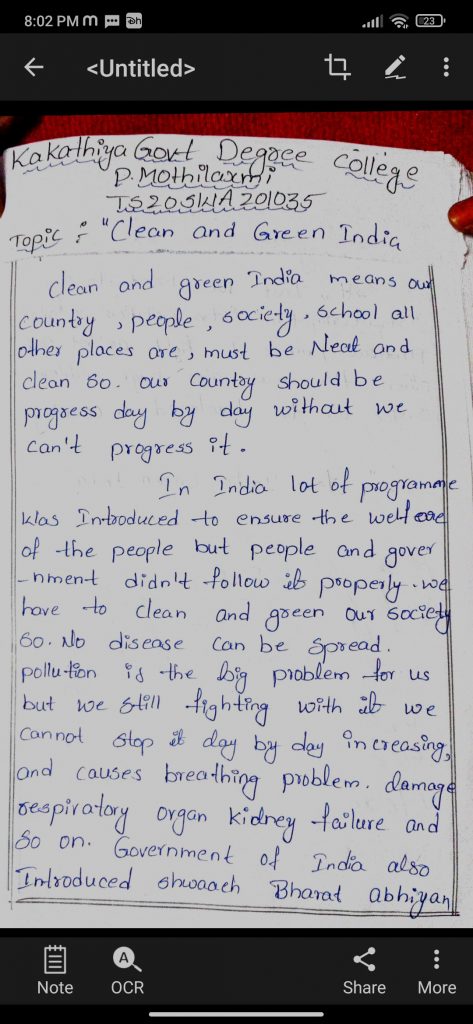 8:02 PM
23
<Untitled>
Kakathiya Govt Degree College
P. Mothilaxmi
TS20SWA201035
Topic : "Clean and Green India
Clean and green India means our
country , people , society , school all
other places are , must be Neat and
clean So. our Country should be
progress day by day without we
can't progress it .
In India lot of programme
Was Introduced to ensure the welfare
of the people but people and gover
-nment didn't follow it properly. we
have to clean and green our society
So. No disease can be spread.
pollution is the big problem for us
but we still fighting with it we
Cannot stop it day by day increasing,
and causes breathing problem. damage
respiratory organ kidney failure and
So on. Government of India also
Introduced shwaach Bharat abhiyan
Note
OCR
Share
More